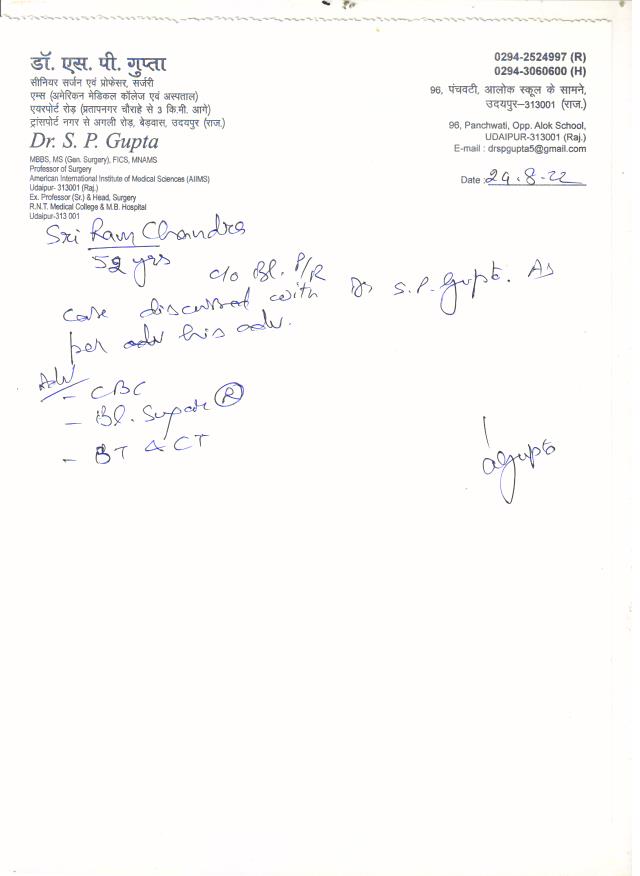 डॉ. एस. पी. गुप्ता
सीनियर सर्जन एवं प्रोफेसर, सर्जरी
एम्स (अमेरिकन मेडिकल कॉलेज एवं अस्पताल)
एयरपोर्ट रोड़ (प्रतापनगर चौराहे से 3 कि.मी. आगे)
ट्रांसपोर्ट नगर से अगली रोड़, बेड़वास, उदयपुर (राज.)
Dr. S. P. Gupta
MBBS, MS (Gen. Surgery), FICS, MNAMS
Professor of Surgery
American International Institute of Medical Sciences (AIIMS)
Udaipur- 313001 (Raj.)
Ex. Professor (Sr.) & Head, Surgery
R.N.T. Medical College & M.B. Hospital
Udaipur-313 001
0294-2524997 (R)
0294-3060600 (H)
96, पंचवटी, आलोक स्कूल के सामने,
उदयपुर–313001 (राज.)
96, Panchwati, Opp. Alok School,
UDAIPUR-313001 (Raj.)
E-mail : drspgupta5@gmail.com
Date : 29.8.22
Sri Ram Chandra
52 yrs
c/o Bl. P/R
Case discussed with Dr S.P. Gupta. As
per adv his adv.
Adv
- CBC
- Bl. Sugar (R)
- BT & CT